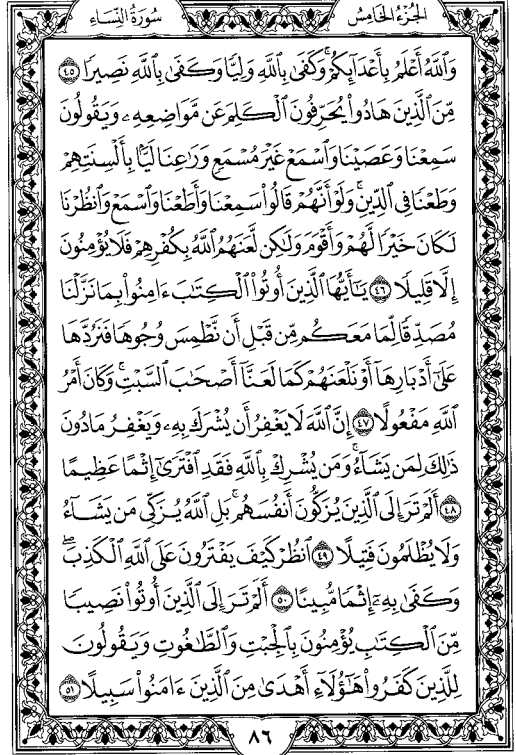 الجزء الخامس
سورة النساء
وَٱللَّهُ أَعۡلَمُ بِأَعۡدَآئِكُمۡۚ وَكَفَىٰ بِٱللَّهِ وَلِيّٗا وَكَفَىٰ بِٱللَّهِ نَصِيرٗا ٤٥
مِّنَ ٱلَّذِينَ هَادُواْ يُحَرِّفُونَ ٱلۡكَلِمَ عَن مَّوَاضِعِهِۦ وَيَقُولُونَ
سَمِعۡنَا وَعَصَيۡنَا وَٱسۡمَعۡ غَيۡرَ مُسۡمَعٖ وَرَٰعِنَا لَيَّۢا بِأَلۡسِنَتِهِمۡ
وَطَعۡنٗا فِي ٱلدِّينِۚ وَلَوۡ أَنَّهُمۡ قَالُواْ سَمِعۡنَا وَأَطَعۡنَا وَٱسۡمَعۡ وَٱنظُرۡنَا
لَكَانَ خَيۡرٗا لَّهُمۡ وَأَقۡوَمَ وَلَٰكِن لَّعَنَهُمُ ٱللَّهُ بِكُفۡرِهِمۡ فَلَا يُؤۡمِنُونَ
إِلَّا قَلِيلٗا ٤٦ يَٰٓأَيُّهَا ٱلَّذِينَ أُوتُواْ ٱلۡكِتَٰبَ ءَامِنُواْ بِمَا نَزَّلۡنَا
مُصَدِّقٗا لِّمَا مَعَكُم مِّن قَبۡلِ أَن نَّطۡمِسَ وُجُوهٗا فَنَرُدَّهَا
عَلَىٰٓ أَدۡبَارِهَآ أَوۡ نَلۡعَنَهُمۡ كَمَا لَعَنَّآ أَصۡحَٰبَ ٱلسَّبۡتِۚ وَكَانَ أَمۡرُ
ٱللَّهِ مَفۡعُولًا ٤٧ إِنَّ ٱللَّهَ لَا يَغۡفِرُ أَن يُشۡرَكَ بِهِۦ وَيَغۡفِرُ مَا دُونَ
ذَٰلِكَ لِمَن يَشَآءُۚ وَمَن يُشۡرِكۡ بِٱللَّهِ فَقَدِ ٱفۡتَرَىٰٓ إِثۡمًا عَظِيمًا
٤٨ أَلَمۡ تَرَ إِلَى ٱلَّذِينَ يُزَكُّونَ أَنفُسَهُمۚ بَلِ ٱللَّهُ يُزَكِّي مَن يَشَآءُ
وَلَا يُظۡلَمُونَ فَتِيلًا ٤٩ ٱنظُرۡ كَيۡفَ يَفۡتَرُونَ عَلَى ٱللَّهِ ٱلۡكَذِبَۖ
وَكَفَىٰ بِهِۦٓ إِثۡمٗا مُّبِينًا ٥٠ أَلَمۡ تَرَ إِلَى ٱلَّذِينَ أُوتُواْ نَصِيبٗا
مِّنَ ٱلۡكِتَٰبِ يُؤۡمِنُونَ بِٱلۡجِبۡتِ وَٱلطَّٰغُوتِ وَيَقُولُونَ
لِلَّذِينَ كَفَرُواْ هَٰٓؤُلَآءِ أَهۡدَىٰ مِنَ ٱلَّذِينَ ءَامَنُواْ سَبِيلًا ٥١
٨٦